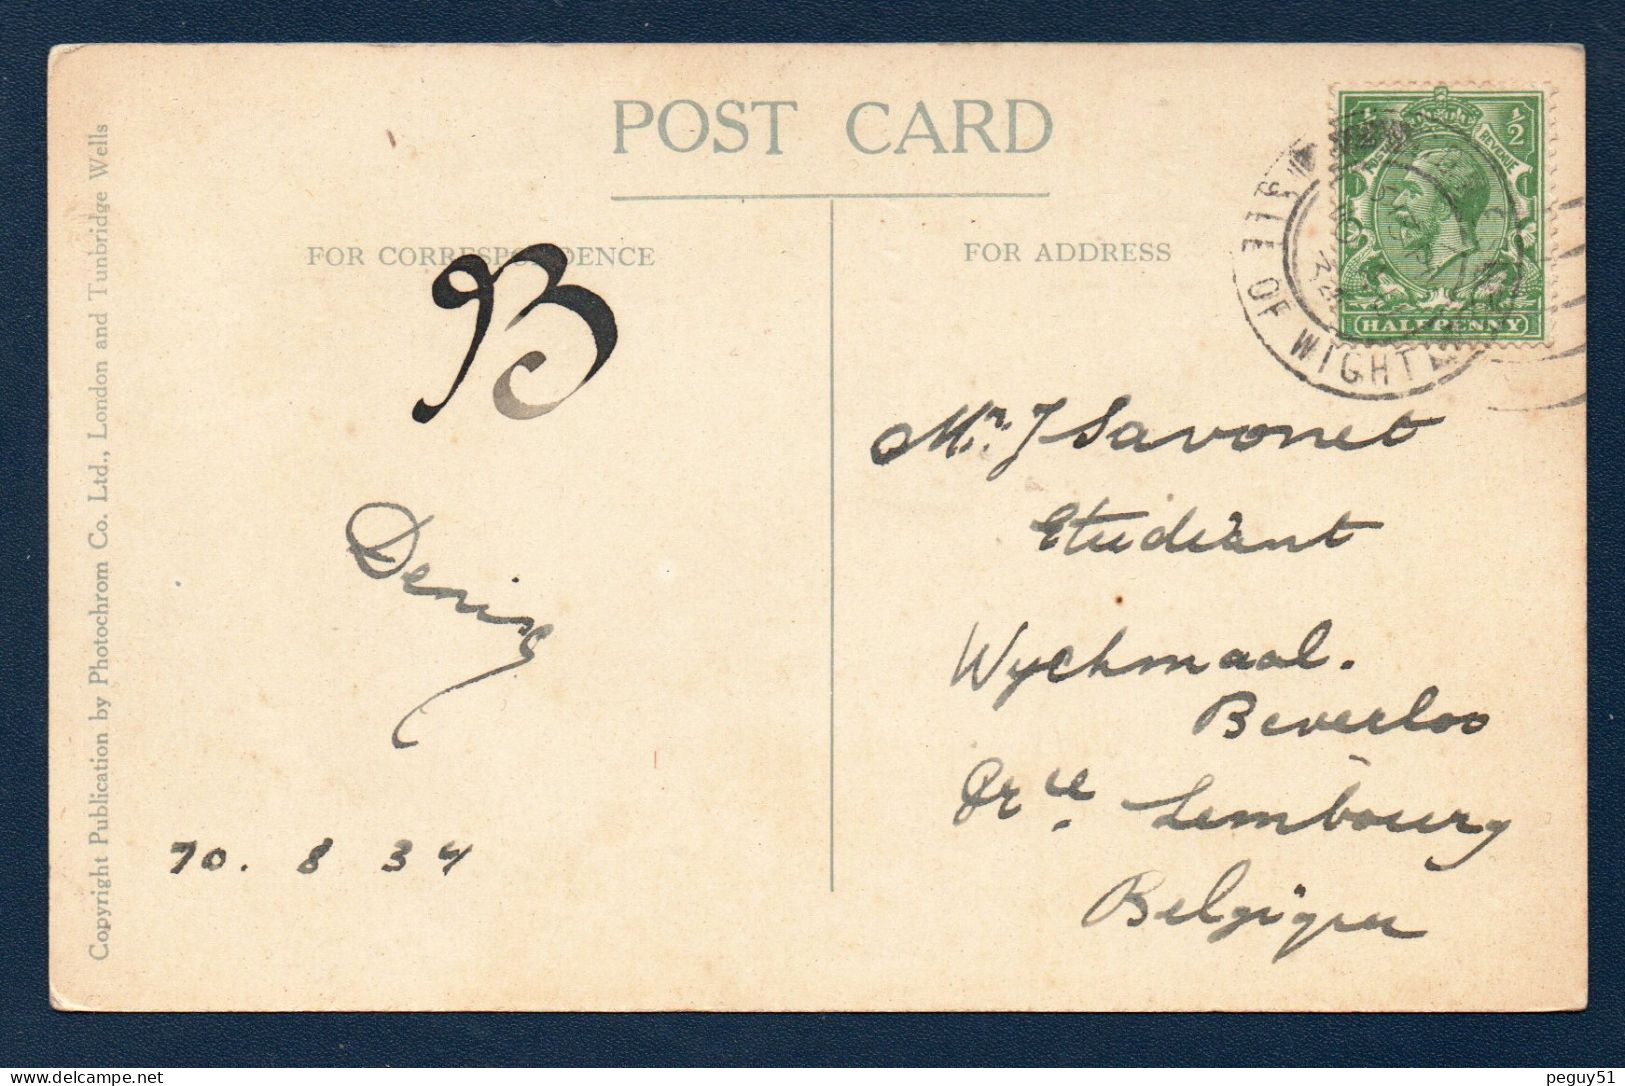 POST CARD
FOR CORRESPONDENCE
FOR ADDRESS
B
Denise
10. 8 34
Copyright Publication by Photochrom Co. Ltd., London and Tunbridge Wells
½ POSTAGE REVENUE ½
HALFPENNY
ISLE OF WIGHT
Mr. J Savonet
Etudiant
Wychmaal.
Beverloo
Prce. Lembourg
Belgique
peguy51